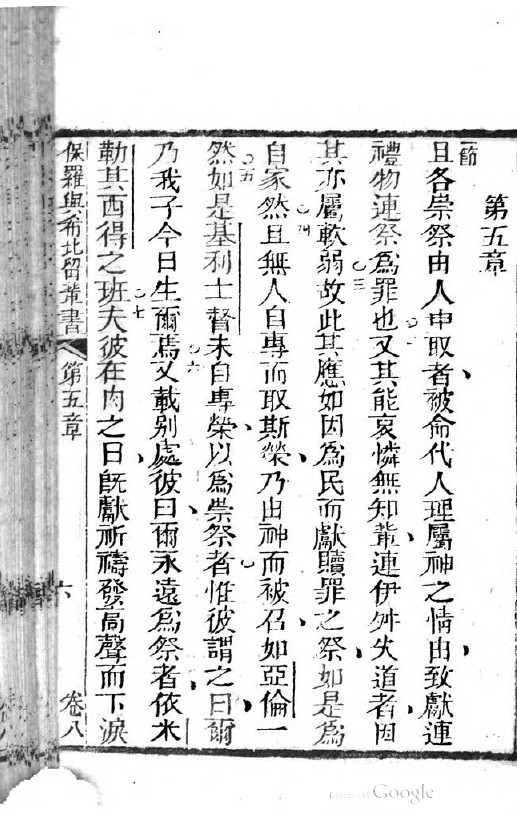 第五章
節
且各崇祭由人中取者被命代人理屬神之情由致獻連
禮物連祭為罪也又其能哀憐無知輩連伊舛失道者因
其亦屬軟弱故此其應如因為民而獻贖罪之祭如是為
自家然且無人自專而取斯榮乃由神而被召如亞倫一
然如是基利士督未自專榮以為崇祭者惟彼謂之曰爾
乃我子今日生爾焉又載別處彼曰爾永遠為祭者依米
勒其西得之班夫彼在肉之日既獻祈禱發高聲而下淚
保羅與希北留輩書 第五章 六 卷八
Google